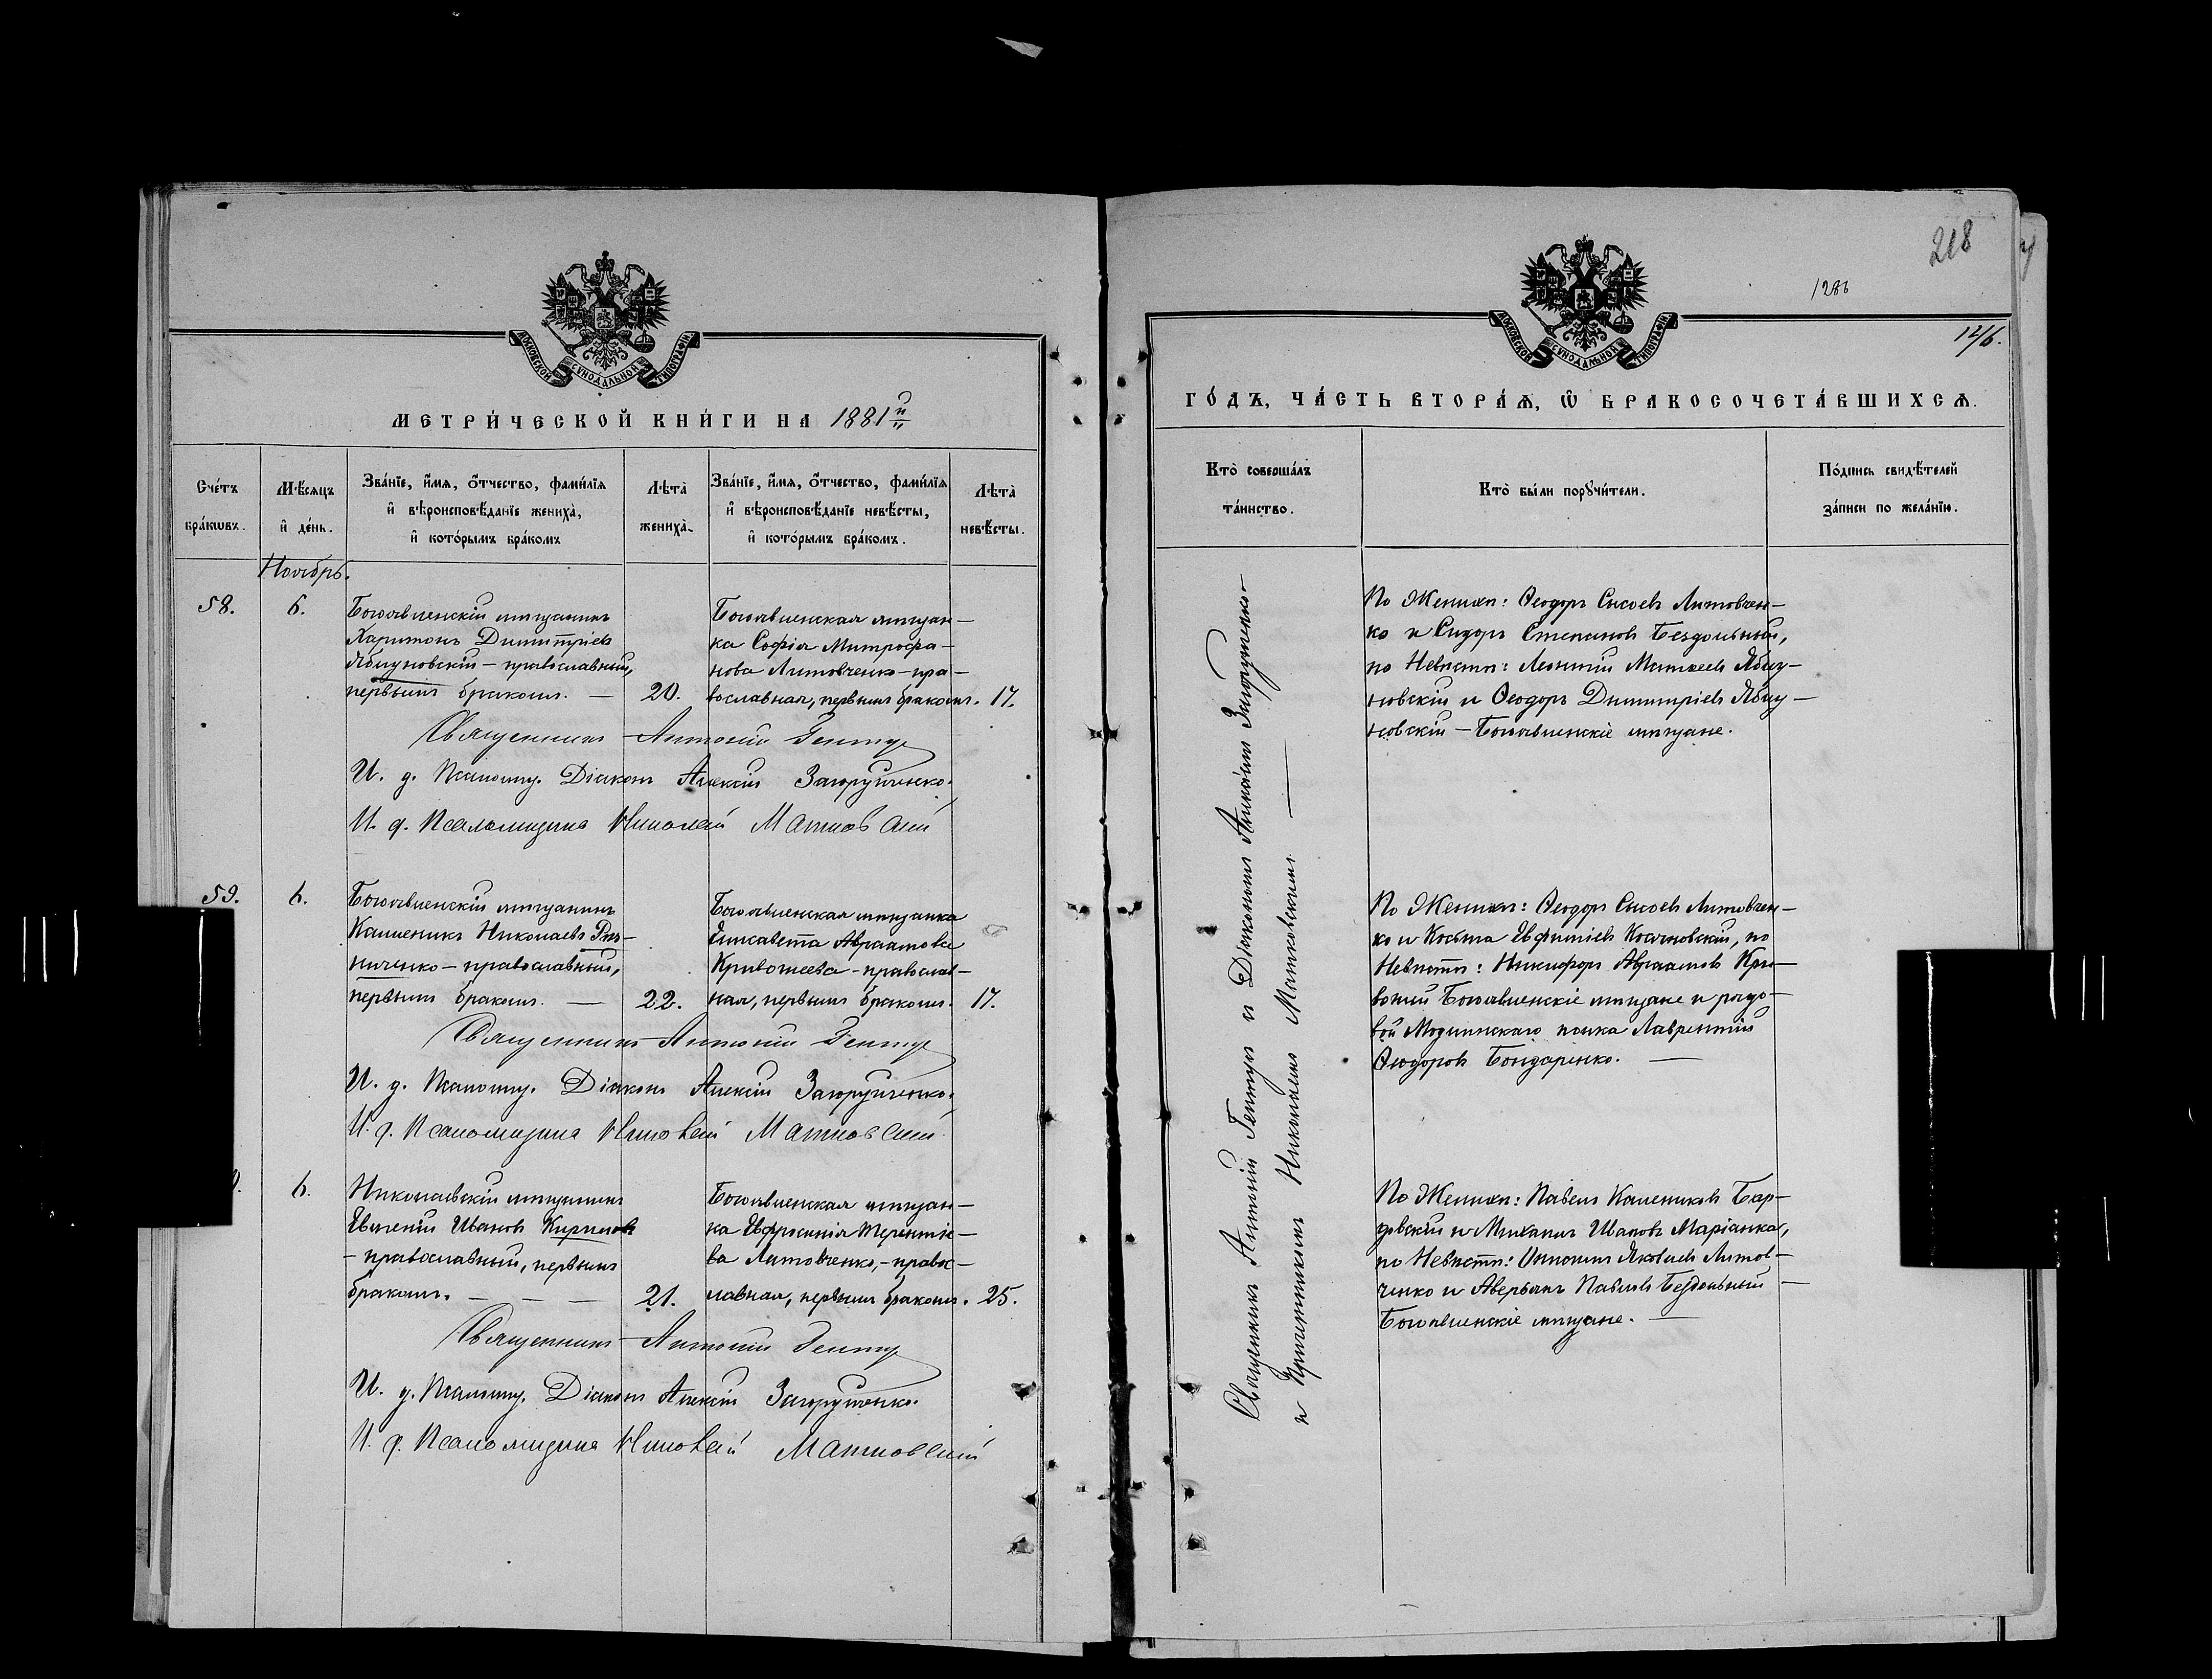 МОСКОВСКОЙ СУНОДАЛЬНОЙ ТИПОГРАФІИ
МЕТРИ́ЧЕСКОЙ КНИ́ГИ НА 1881й
Сче́тъ бра́кѡвъ.
Мѣ́сяцъ и҆ де́нь.
Зва́нїе, и҆́мѧ, ѻ҆́тчество, фами́лїѧ
и҆ вѣроисповѣ́данїе жениха̀,
и҆ кото́рымъ бра́комъ
Лѣ́та̀ жениха̀.
Зва́нїе, и҆́мѧ, ѻ҆́тчество, фами́лїѧ
и҆ вѣроисповѣ́данїе невѣ́сты,
и҆ кото́рымъ бра́комъ.
Лѣ́та̀ невѣ́сты.
Ноябрь.
58.
6.
Богоявленскій мѣщанинъ
Харитонъ Димитріевъ
Яблуновскій – православный,
первымъ бракомъ. —
20.
Богоявленская мѣщан-
ка Софія Митрофа-
нова Литовченко – пра-
вославная, первымъ бракомъ.
17.
Священникъ Антоній
И. д. Псаломщ. Діаконъ Алексій
И. д. Псаломщика Николай
59.
6.
Богоявленскій мѣщанинъ
Каленикъ Николаевъ Рѣз-
ниченко – православный,
первымъ бракомъ. —
22.
Богоявленская мѣщанка
Елисавета Авраамова
Кривошеева – православ-
ная, первымъ бракомъ.
17.
Священникъ Антоній
И. д. Псаломщ. Діаконъ Алексій
И. д. Псаломщика Николай
6.
Николаевскій мѣщанинъ
Евгеній Ивановъ Кириловъ
– православный, первымъ
бракомъ. — — —
21.
Богоявленская мѣщан-
ка Евфросинія Терентіе-
ва Литовченко, – правос-
лавная, первымъ бракомъ.
25.
Священникъ Антоній
И. д. Псаломщ. Діаконъ Алексій
И. д. Псаломщика Николай
218
1286
12/6.
МОСКОВСКОЙ СУНОДАЛЬНОЙ ТИПОГРАФІИ
ГО́ДЪ, ЧА́СТЬ ВТОРА́Ѧ, Ѽ БРАКОСОЧЕТА́ВШИХСѦ.
Кто̀ соверша́лъ
та́инство.
Кто̀ бы́ли порꙋчи́тели.
По́дпись свидѣ́телей
за́писи по жела́нїю.
Священникъ Антоній и Діакономъ
и Причетникомъ Николаемъ
По Женихѣ: Ѳеодоръ Сысоевъ Литовчен-
ко и Сидоръ Степановъ Бездольный,
по Невѣстѣ: Леонтій Матвеевъ Яблу-
новскій и Ѳеодоръ Димитріевъ Яблу-
новскій – Богоявленскіе мѣщане.
По Женихѣ: Ѳеодоръ Сысоевъ Литовчен-
ко и Косьма Евфиміевъ по
Невѣстѣ: Никифоръ Авраамовъ Кри-
Богоявленскіе мѣщане и рядо-
вой Модлинскаго полка Лаврентій
Ѳеодоровъ Бондаренко. —
По Женихѣ: Павелъ Калениковъ
и Михаилъ Ивановъ Маріанка,
по Невѣстѣ: Яковлевъ Литов-
ченко и Аверьянъ Павловъ Бездольный
Богоявленскіе мѣщане. —